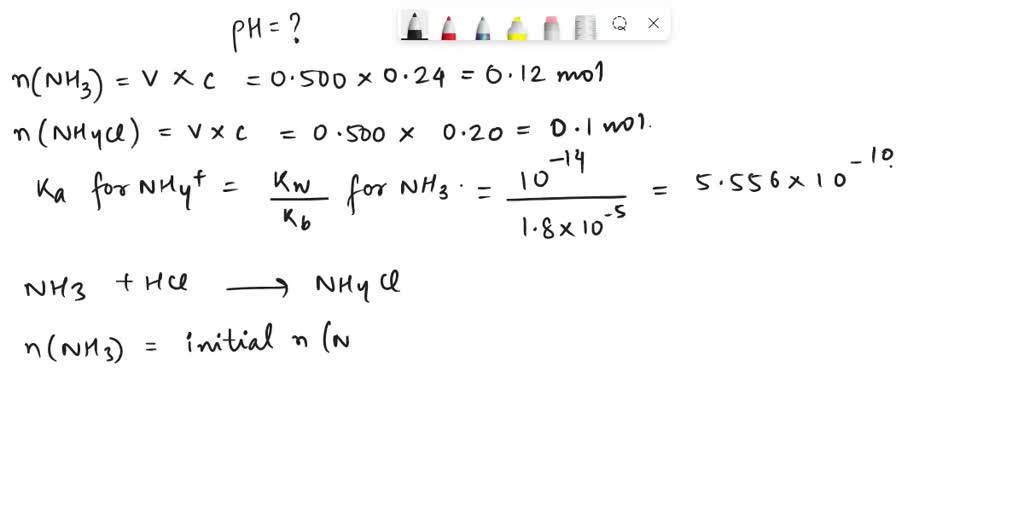 pH = ?
n(NH3) = V × C = 0.500 × 0.24 = 0.12 mol
n(NH4Cl) = V × C = 0.500 × 0.20 = 0.1 mol.
Ka for NH4+ = Kw/Kb for NH3 = 10^-14/1.8×10^-5 = 5.556×10^-10
NH3 + HCl → NH4Cl
n(NH3) = initial n (N